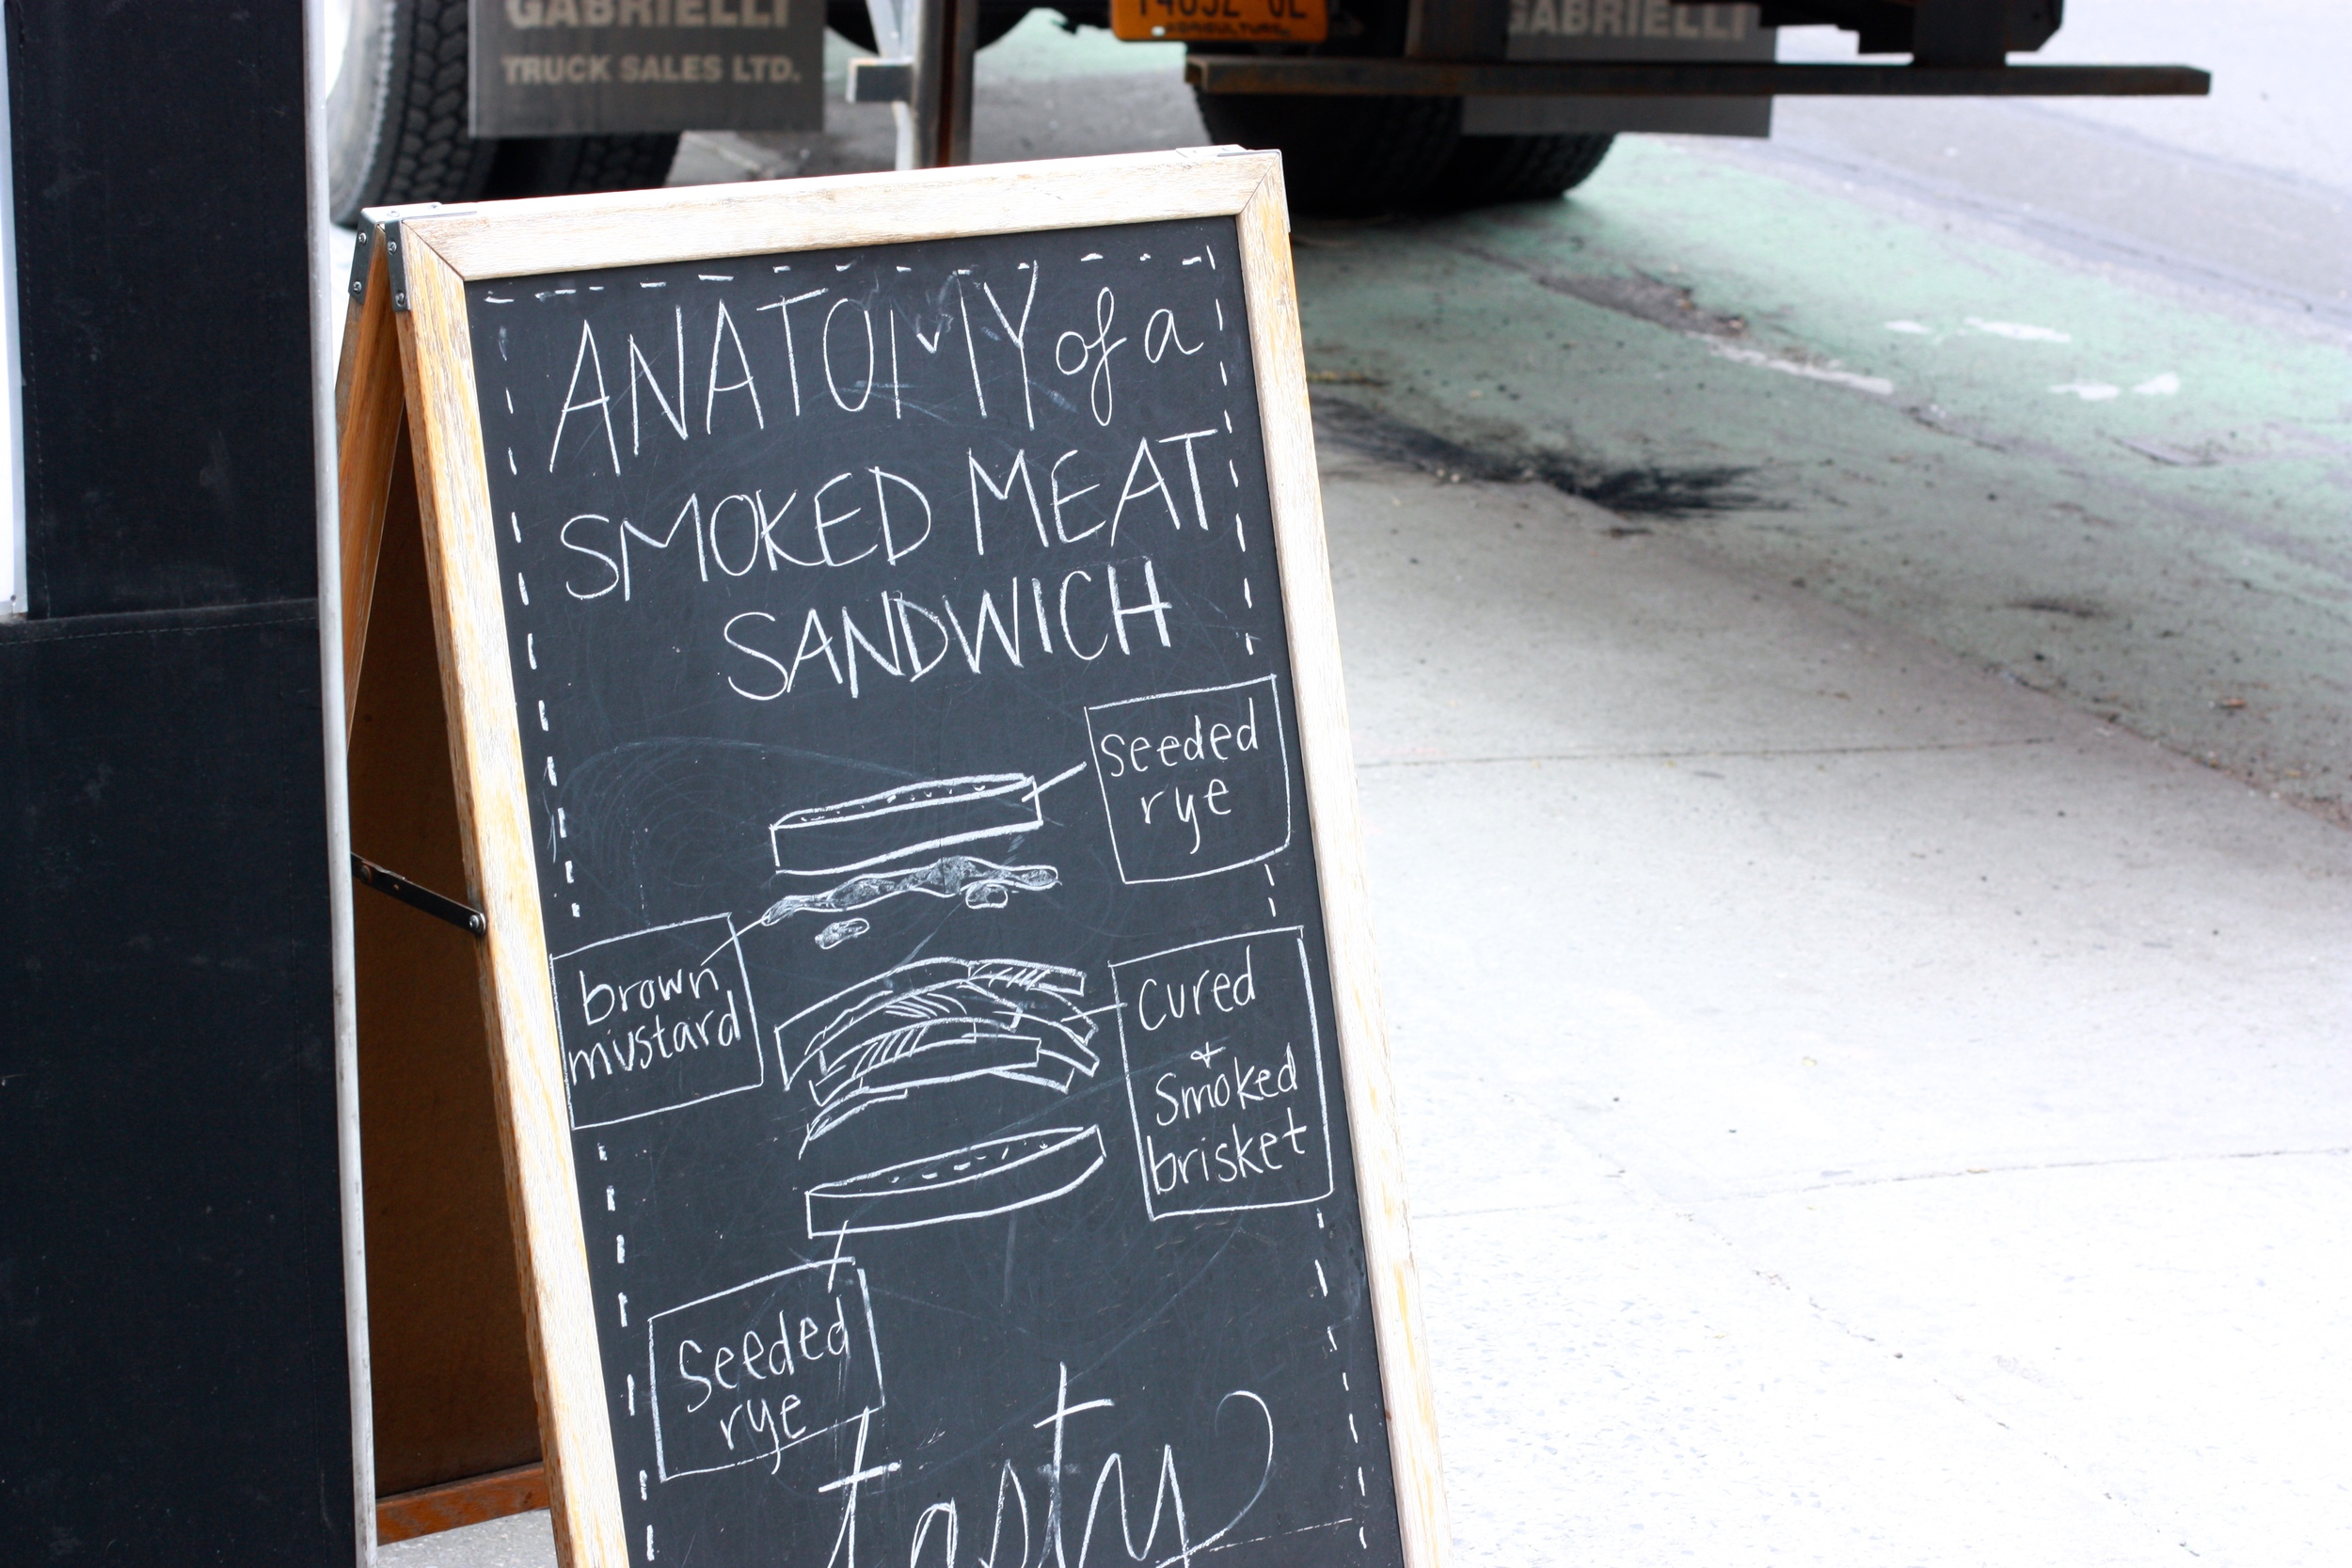 GABRIELLI
TRUCK SALES LTD.
GABRIELLI
ANATOMY of a
SMOKED MEAT
SANDWICH
Seeded
rye
brown
mustard
Cured
+
Smoked
brisket
Seeded
rye
tasty